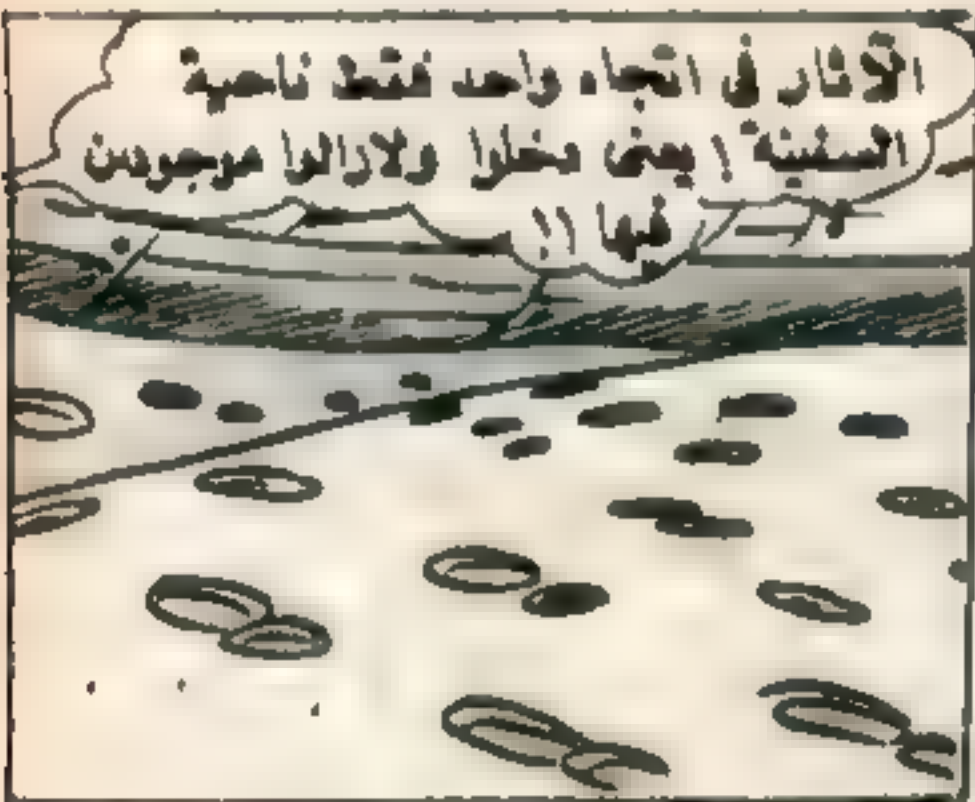 الآثار فى اتجاه واحد فقط ناحية
السفينة ! يعنى دخلوا ولازالوا موجودين
فيها !!